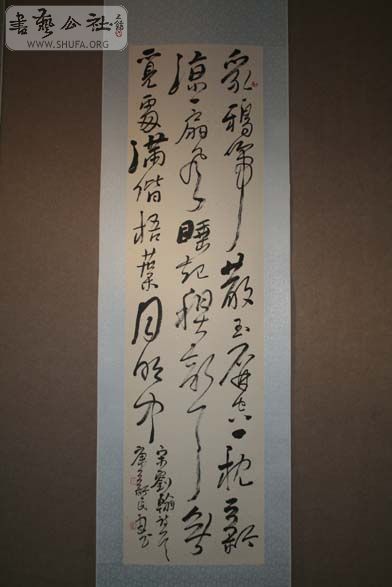 書藝公社
WWW.SHUFA.ORG
乳鴉啼散玉屏空一枕新
涼一扇風睡起秋聲無
覓處滿階梧葉月明中
宋劉翰